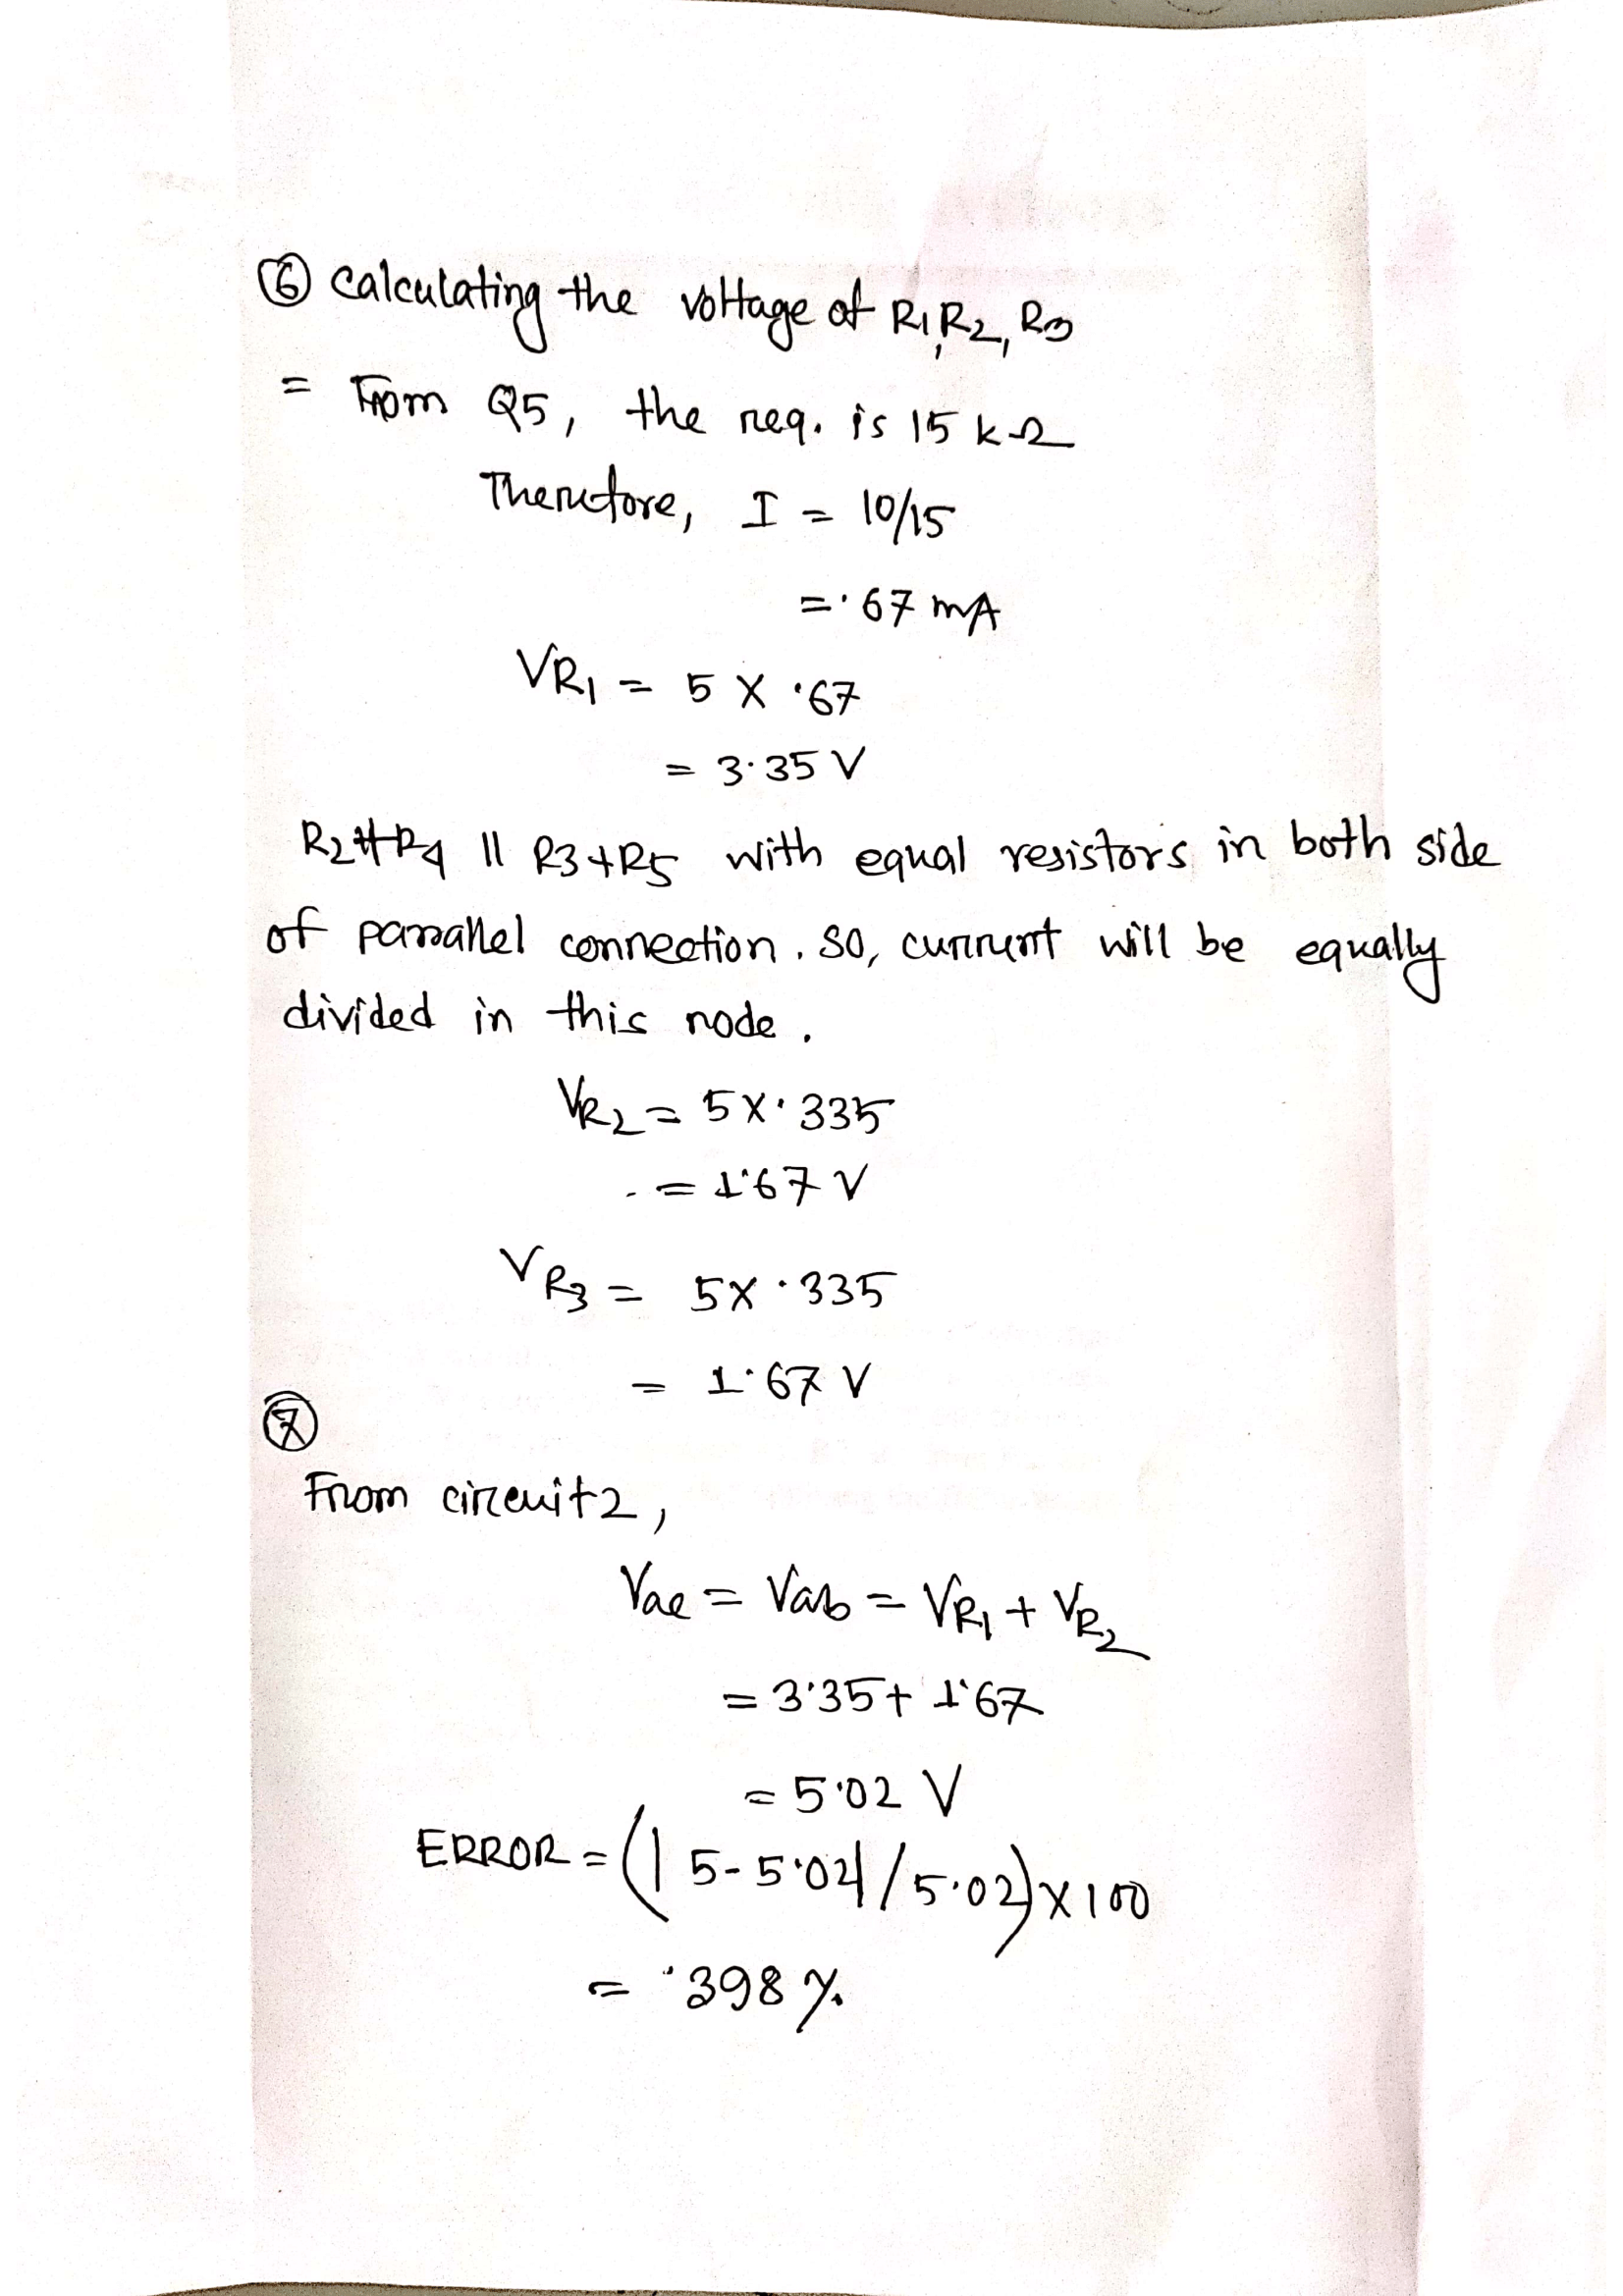 ⑥ Calculating the voltage of R1, R2, R3
= From Q5, the req. is 15 kΩ
Therefore, I = 10/15
= .67 mA
VR1 = 5 X .67
= 3.35 V
R2+R4 || R3+R5 with equal resistors in both side
of parrallel connection. So, current will be equally
divided in this node.
VR2 = 5X.335
= 1.67 V
VR3 = 5X.335
= 1.67 V
⑦
From circuit2,
Vae = Vab = VR1 + VR2
= 3.35+ 1.67
= 5.02 V
ERROR = (|5-5.02|/5.02)X100
= .398%